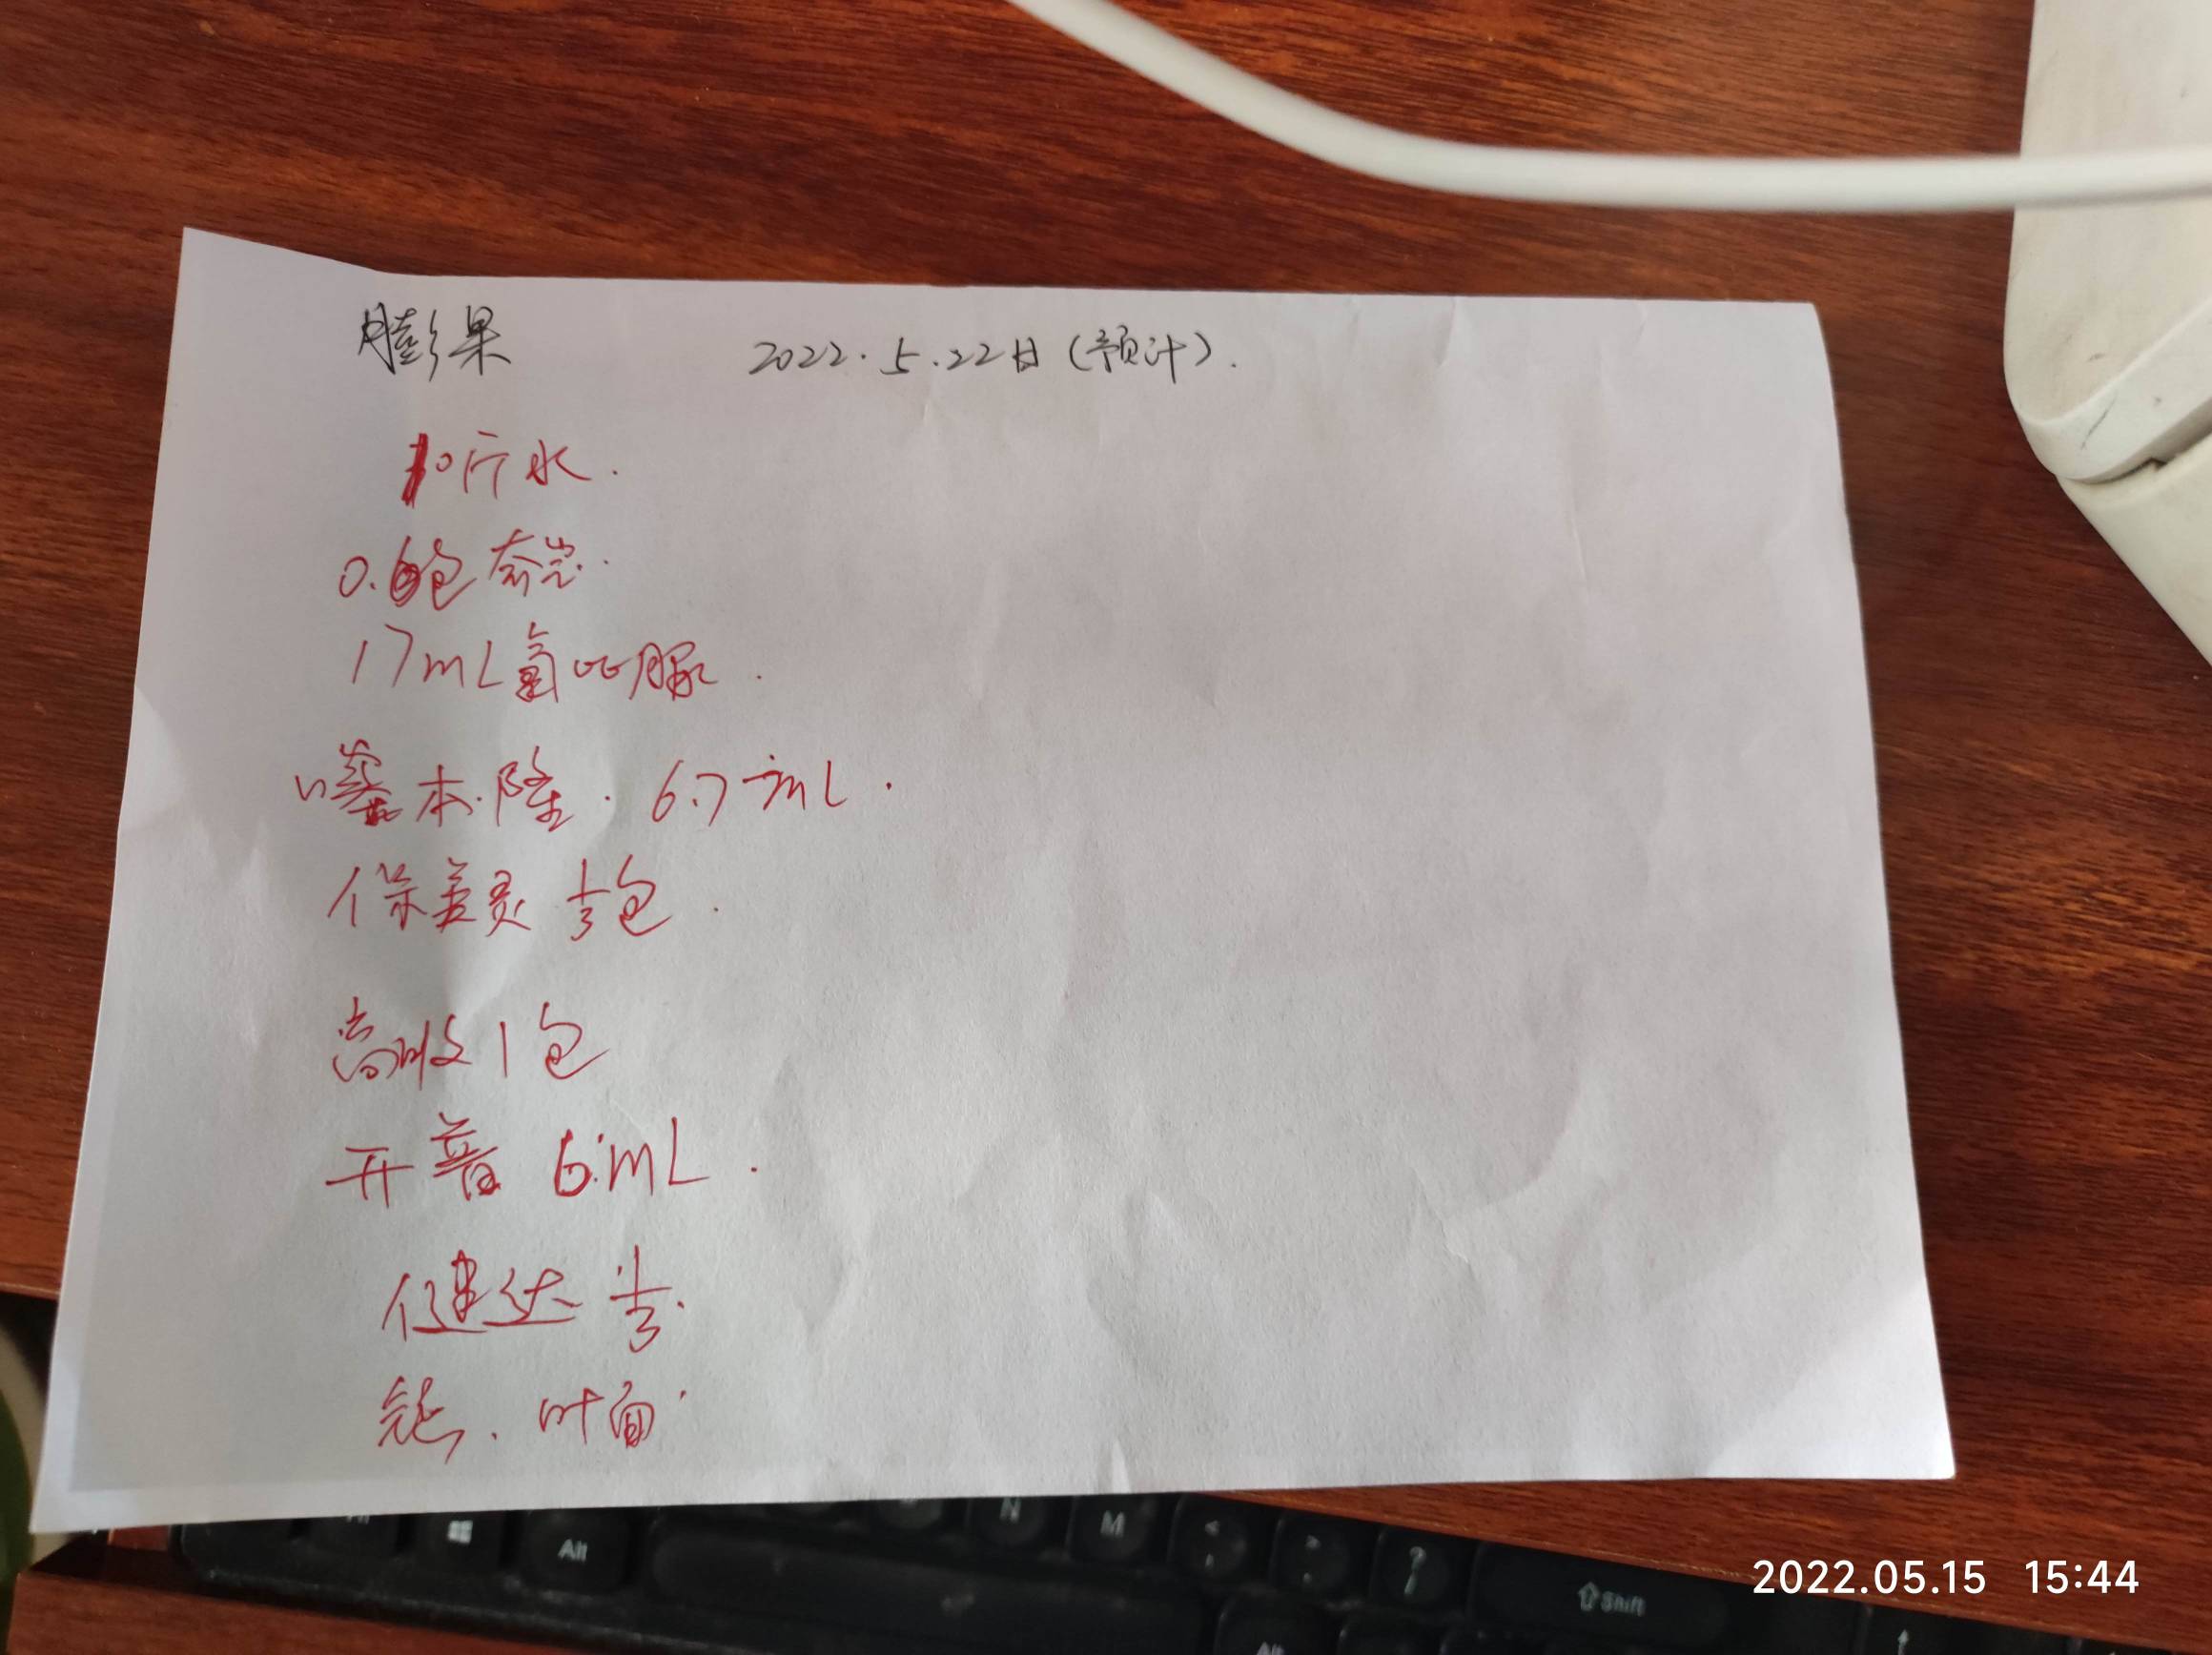 膨果 2022.5.22日(预计).
10斤水.
0.6包奈安.
17mL氯吡脲.
噻苯隆. 6.7mL.
保美灵 1/3包.
高收1包
开普 6mL.
健达 1/3.
叶面
N M < , > . ? /
Alt Shift
2022.05.15 15:44